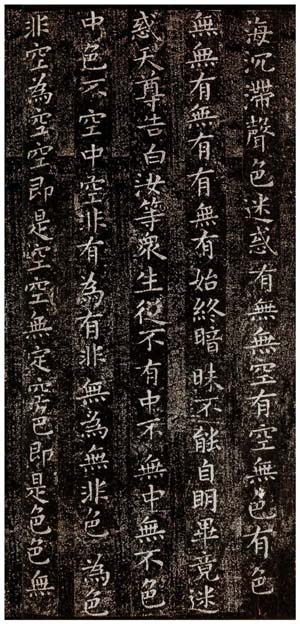 海沉滯聲色迷惑有無無空有空無色有色
無無有無有有無有始終暗昧不能自明畢竟迷
惑天尊告白汝等眾生從不有中不無中無不色
中色不空中空非有為有非無為無非色為色
非空為空空即是空空無定空色即是色色無